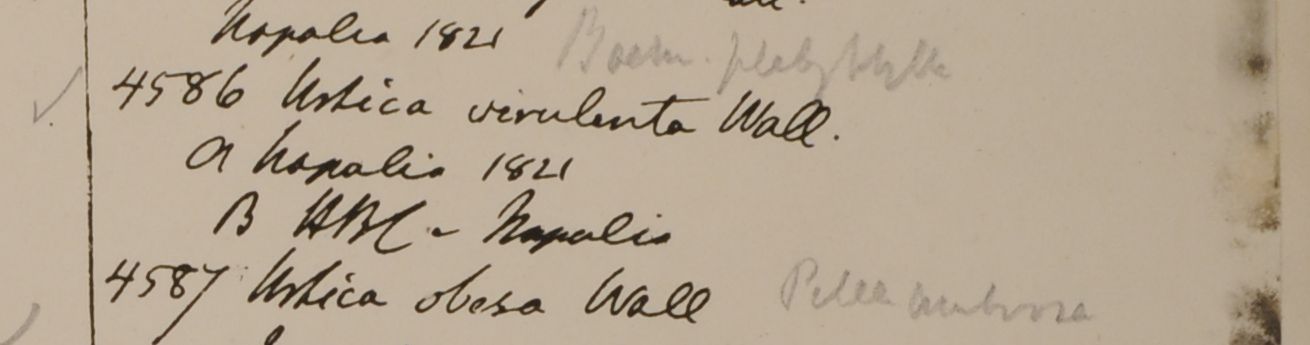 Napalia 1821 Boehm. platyphylla
4586 Urtica virulenta Wall.
A Napalia 1821
B HBC - Napalia
4587 Urtica obesa Wall Pilea umbrosa